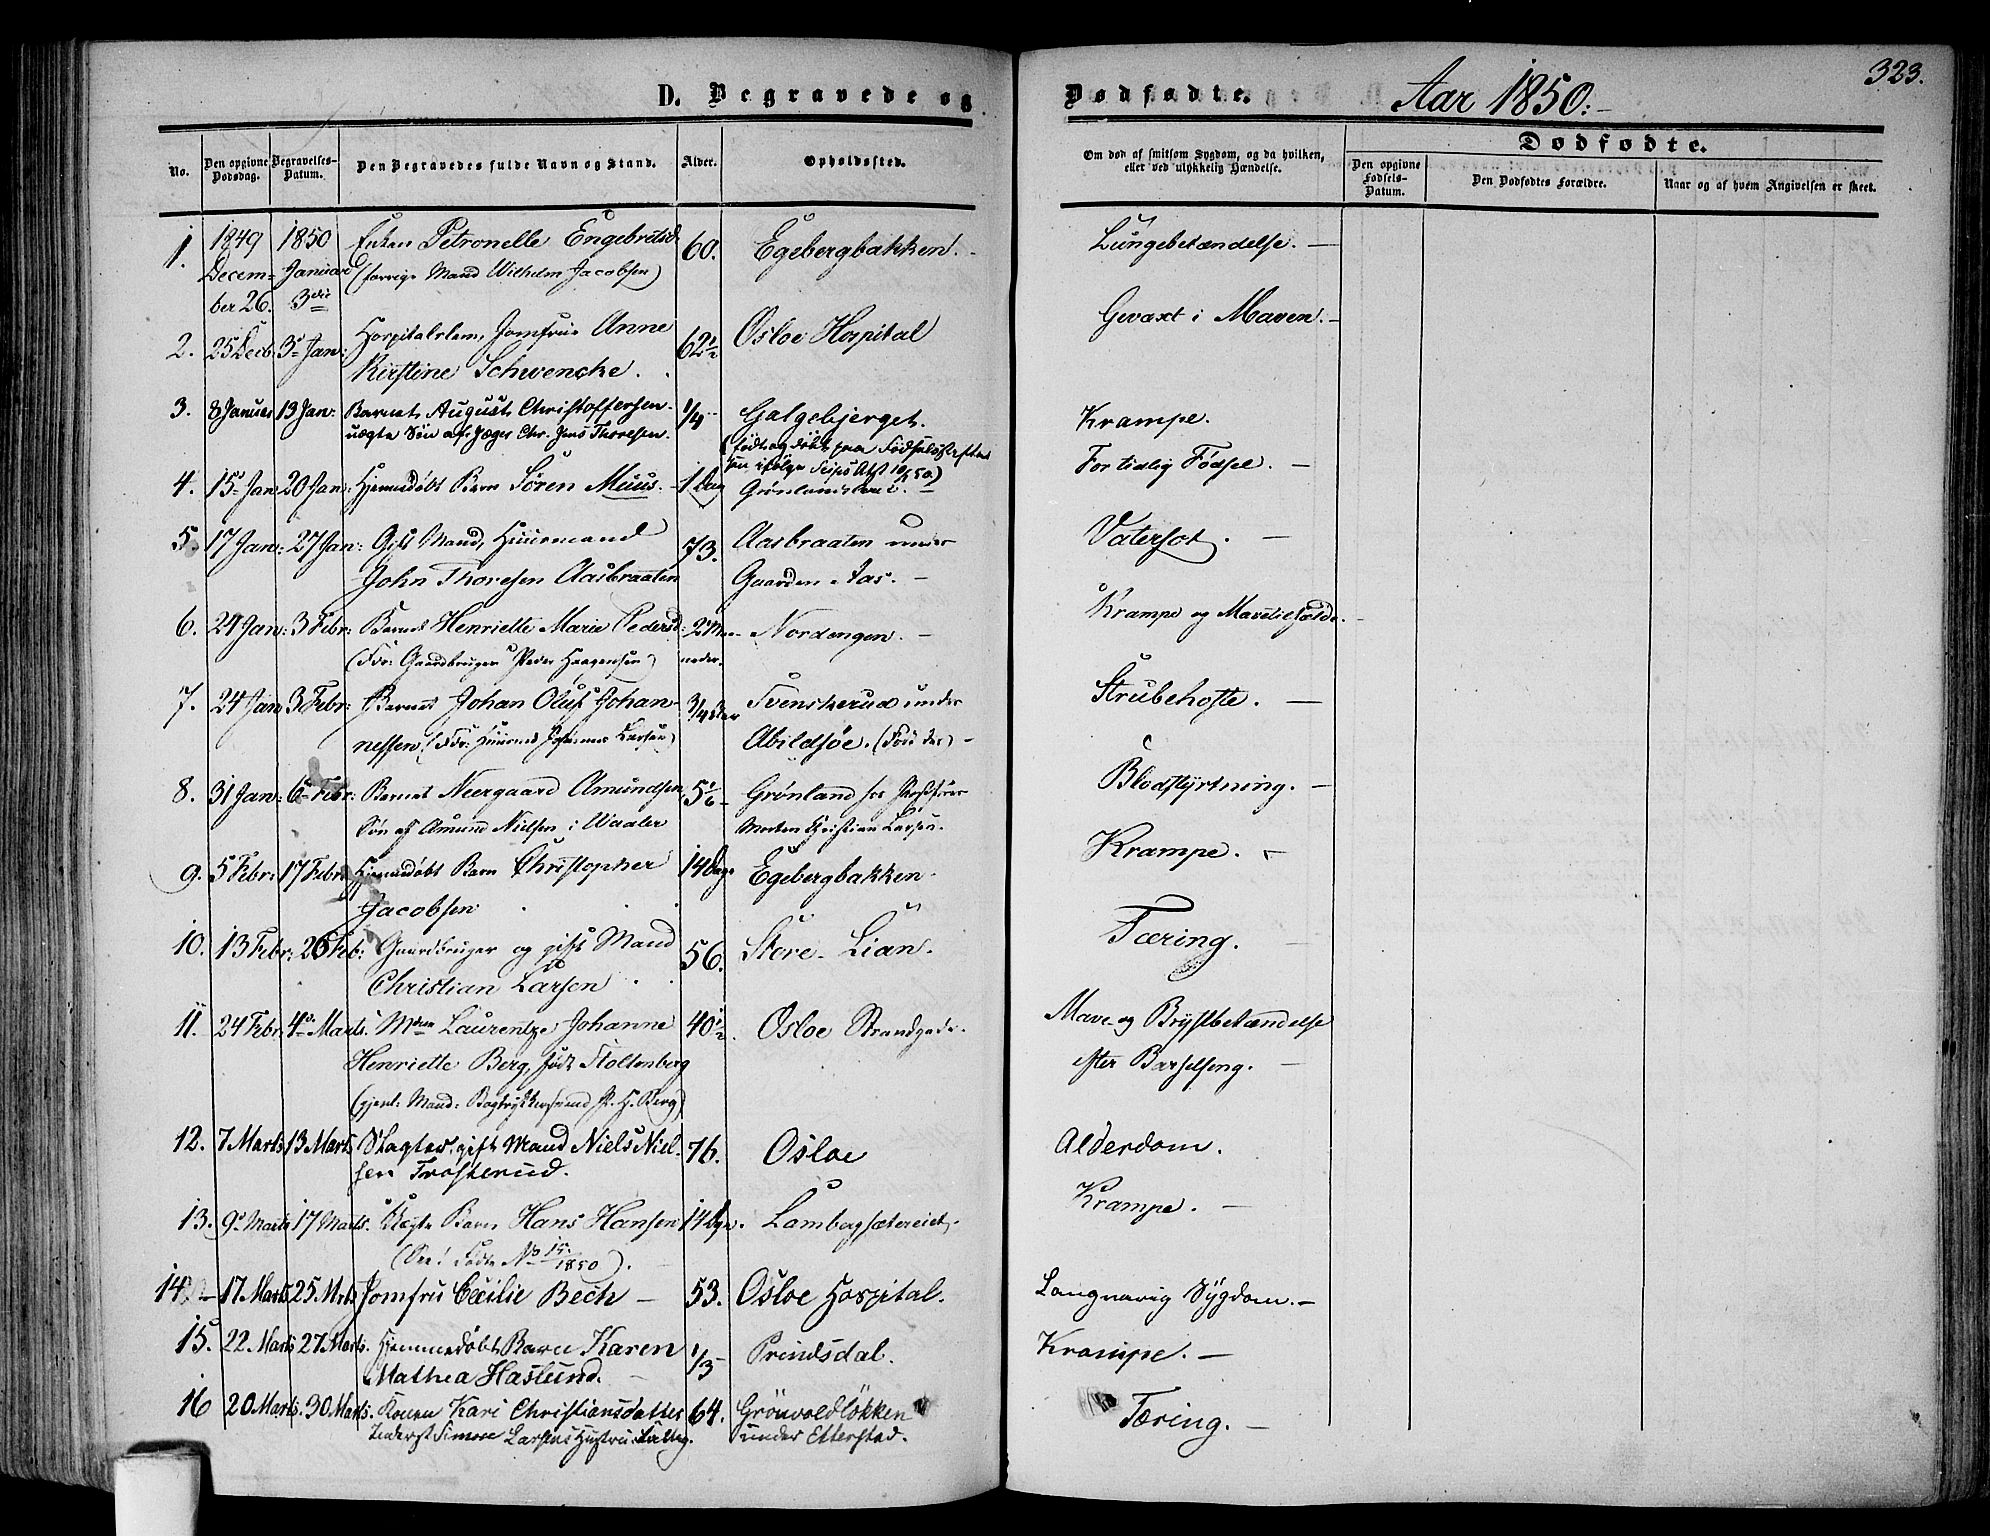 D. Begravede og
Dødfødte.
Aar 1850.-
323.
No.
Den opgivne Dødsdag.
Begravelses-Datum.
Den Begravedes fulde Navn og Stand.
Alder.
Opholdssted.
Om død af smitsom Sygdom, og da hvilken, eller ved ulykkelig Hændelse.
Dødfødte.
Den opgivne Fødsels-Datum.
Den Dødfødtes Forældre.
Naar og af hvem Angivelsen er skeet.
1. 1849 1850 Enken Petronelle Engebretsd. 60. Egebergbakken. Lungebetændelse. -
Decem- Januar (forrige Mand Wilhelm Jacobsen)
ber 26. 3die
2. 25 Decb. 3. Jan: Hospitalslem, Jomfrue Anne 62½ Osloe Hospital Gevæxt i Maven. -
Kirstine Schwencke.
3. 8 Januar 13 Jan: Barnet August Christoffersen 1/4 Galgebjerget. Krampe.
uægte Søn af: Jæger Chr. Jens Thoresen. (født og døbt paa Fødselsstiftel
4. 15. Jan 20 Jan: Hjemmedøbt Barn Sören Muus. - 1 Dag Grønlandsleret. For tidlig Fødsel. -
5. 17 Jan: 27 Jan: Gift Mand, Huusmand 73. Aasbraaten under Vatersot. -
John Thoresen Aasbraaten Gaarden Aas. -
6. 24 Jan: 3 Febr: Barnet Henriette Marie Pedersd: 2 Maa- Nordengen. - Krampe og Mavetilfælde. -
(Fdr: Gaardbruger Peder Haagensen) neder.
7. 24 Jan 3 Febr: Barnet Johan Oluf Johan- 3/4 Aar Svenskerud under Strubehoste. -
nessen. (Fdr: Huusmd Johannes Larsen) Abildsøe. -
8. 31 Jan: 6. Febr: Barnet Neergaard Amundsen 5 1/6 - Grønland hos Blodstyrtning. -
Søn af Amund Nielsen i Waaler Morten Christian Larsen.
9. 5 Febr: 17 Febr: Hjemmedøbt Barn Christopher 14 Dage Egebergbakken. Krampe. -
Jacobsen
10. 13 Febr: 26 Feb: Gaardbruger og gift Mand 56. Store Lian. Tæring. -
Christian Larsen
11. 24 Febr. 4. Marts. Mdme Laurentze Johanne 40½. Osloe Strandgade. Mave- og Brystbetændelse
Henriette Berg, født Stoltenberg efter Barselseng. -
(gjenl: Mand: Bogtrykkersvend P. H. Berg)
12. 7 Marts 13 Marts Slagter, gift Mand Niels Niel- 76. Osloe Alderdom.
sen Trosterud.
13. 9. Marts 17 Marts. Uægte Barn Hans Hansen 14 Dge. Lambergsætereiet. Krampe. -
(See: Fødte No 15/1850).
14. - 17. Marts 25. Mrts Jomfru Cecilie Bech - 53. Osloe Hospital. Langvarig Sygdom. -
15. 22. Marts 27 Marts. Hjemmedöbt Barn Karen 1/3 - Prindsdal. Krampe. -
Mathea Haslund. -
16 20 Marts. 30 Marts. Konen Kari Christiansdatter 64. Grönvoldløkken Tæring. -
Simore Larsens Hustru under Etterstad.